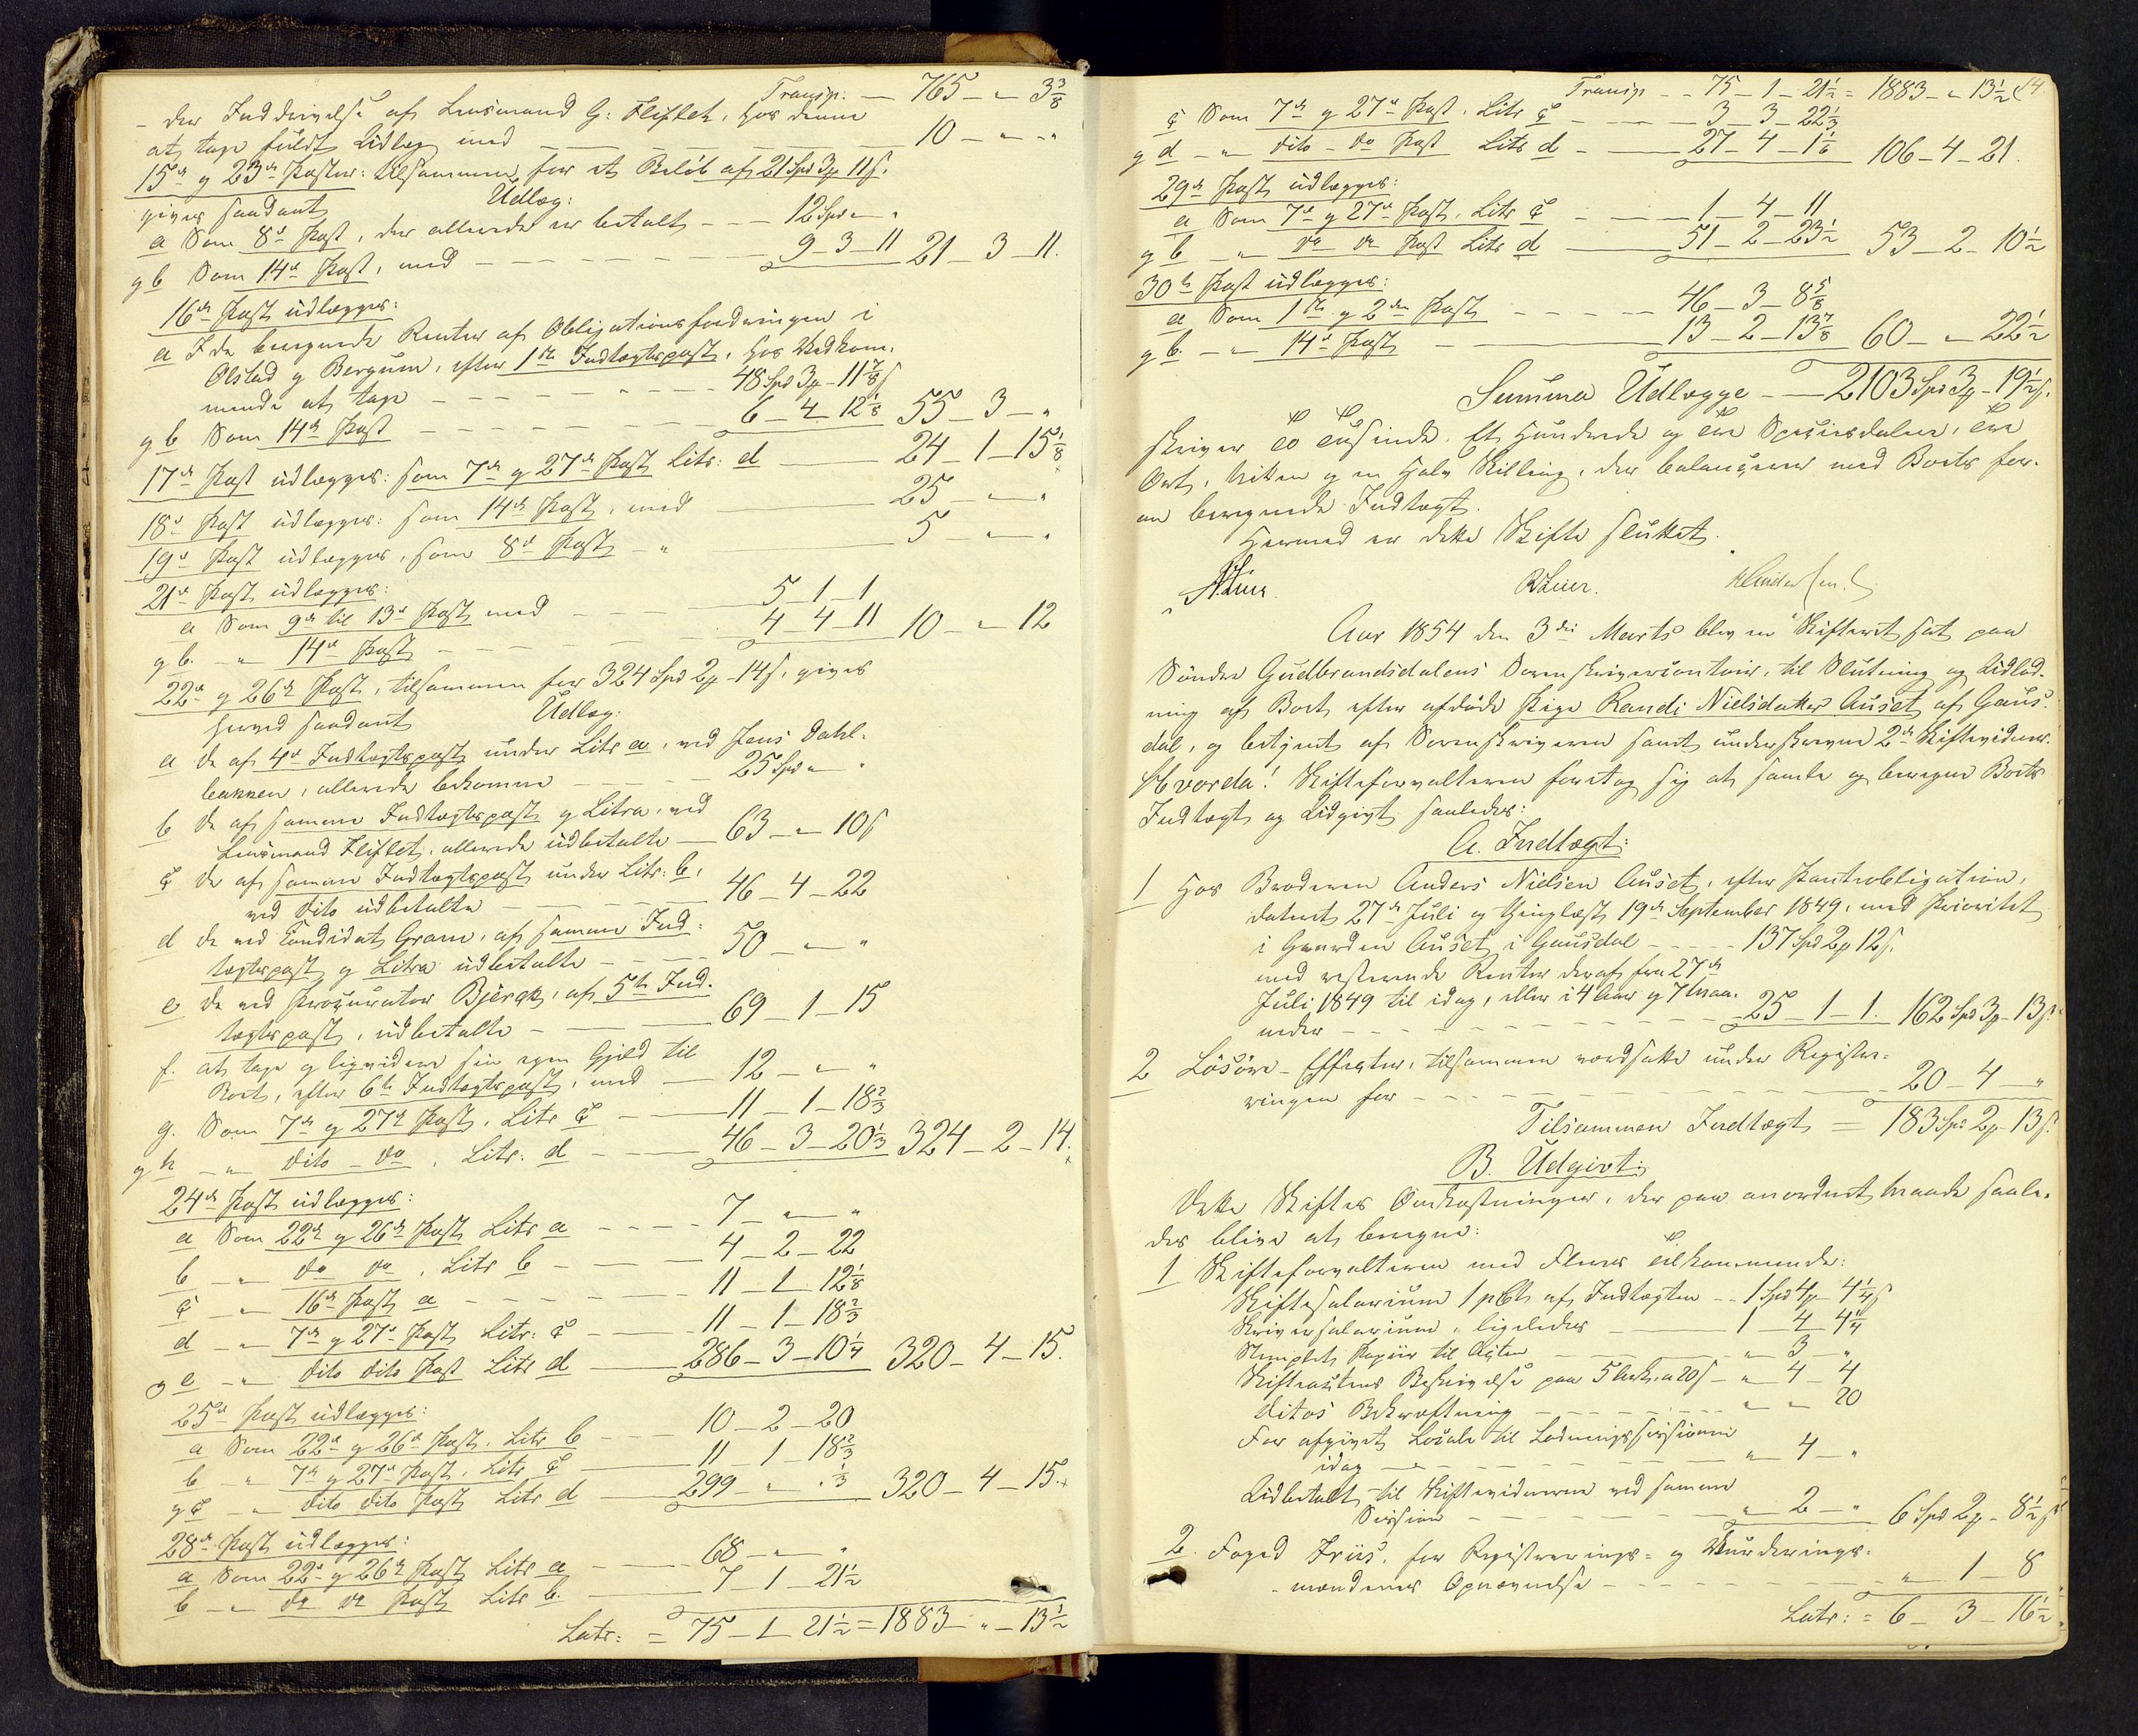 Transp. — 765 — " 3 3/8
- der Inddrivelse af Lensmand G: Fliflet, hos denne
at tage fuldt Udlæg med — 10 — " — "
15de og 23de Poster: tilsammen for et Beløb af 21 Spd 3 # 11 s.
gives saadant Udlæg:
a Som 8de Post, der allerede er betalt — 12 Spd " "
og b Som 14de Post, med — 9 — 3 — 11 21 — 3 — 11.
16de Post udlægges:
a I de beregnede Renter af Obligationsfordringen i
Ølstad og Bergum, efter 1ste Indtægtspost, hos Vedkom-
mende at tage — 48 Spd 3 # - 11 7/8 s
og b Som 14de Post — 6 — 4 — 12 1/8 55 — 3 — "
17de Post udlægges: som 7de og 27de Post Litr: d — 24 — 1 — 15 1/8
18de Post udlægges: som 14de Post, med — 25 — " — "
19de Post udlægges, som 8de Post — " 5 — " — "
21de Post udlægges:
a Som 9de til 13de Post med — 5 — 1 — 1
og b. — " 14de Post — 4 — 4 — 11 10 — " — 12
22de og 26de Post, tilsammen for 324 Spd 2 # - 14 s. gives
herved saadant Udlæg:
a de af 4de Indtægtspost under Litr a, ved Jens Dahl-
bakken, allerede bekomne — 25 Spd " "
b de af samme Indtægtspost og Litra, ved
Lensmand Fliflet, allerede udbetalte — 63 — " — 10 s
c de af samme Indtægtspost under Litr: b,
ved dito udbetalte — 46 — 4 — 22
d de ved Candidat Gram, af samme Ind-
tægtspost og Litra udbetalte — 50 — " — "
e de ved Procurator Bjerck, af 5te Ind-
tægtspost, udbetalte — 69 — 1 — 15
f. at tage og liqvidere sin egen Gjeld til
Boet, efter 6te Indtægtspost, med — 12 — " — "
g. Som 7de og 27de Post, Litr c — 11 — 1 — 18 2/3
og h — " dito — do, Litr: d — 46 — 3 — 20 1/3 324 — 2 — 14.
24de Post udlægges:
a Som 22de og 26de Post Litr a — 7 — " — "
b — " do do, Litr b — 4 — 2 — 22
c — " 16de Post a — 11 — 1 — 12 1/8
d — " 7de og 27de Post Litr: c — 11 — 1 — 18 2/3
og e — " dito dito Post Litr d — 286 — 3 — 10 1/4 320 — 4 — 15.
25de Post udlægges:
a Som 22de og 26de Post. Litr b — 10 — 2 — 20
b — " 7de og 27de Post, Litr c — 11 — 1 — 18 2/3
og c — " dito dito Post Litr d — 299 — " — " 1/3 320 — 4 — 15.
28de Post udlægges:
a Som 22de og 26de Post Litr a — 68 — " — "
b — " do do Post Litr b. — 7 — 1 — 21 1/2
Latr: = 75 — 1 — 21 1/2 = 1883 — " — 13 1/2
Transp — 75 — 1 — 21 1/2 = 1883 — " 13 1/2 4.
c Som 7de og 27de Post. Litr c — 3 — 3 — 22 1/3
og d — " dito — do Post Litr d — 27 — 4 — 1 1/6 106 — 4 — 21.
29de Post udlægges:
a Som 7de og 27de Post. Litr c — 1 — 4 — 11
og b — " do do Post Litr d — 51 — 2 — 23 1/2 53 — 2 — 10 1/2
30te Post udlægges:
a Som 1ste og 2den Post — 46 — 3 — 8 5/8
og b. — " 14de Post — 13 — 2 — 13 7/8 60 — " — 22 1/2
Summa Udlægge — 2103 Spd 3 # - 19 1/2 s.
skriver To Tusinde, Et Hundrede og Tre Speciesdaler, Tre
Ort, Nitten og en Halv Skilling, der balancerer med Boets for-
an beregnede Indtægt.
Hermed er dette Skifte sluttet.
Aar 1854 den 3die Marts blev en Skifteret sat paa
Søndre Gudbrandsdalens Sorenskrivercontoir, til Slutning og Udlod-
ning af Boet efter afdøde Pige Randi Nielsdatter Auset af Gaus-
dal, og betjent af Sorenskriveren samt underskrevne 2de Skiftevidner.
Hvorda! Skifteforvalteren foretog sig at samle og beregne Boets
Indtægt og Udgivt saaledes:
A. Indtægt:
1 Hos Broderen Anders Nielsen Auset, efter Pantobligation,
dateret 27de Juli og thinglæst 19de September 1849, med Prioritet
i Gaarden Auset i Gausdal — 137 Spd 2 # 12 s.
med resterende Renter deraf fra 27de
Juli 1849 til idag, eller i 4 Aar og 7 Maa-
neder — 25 — 1 — 1. 162 Spd 3 # - 13 s.
2 Løsøre-Effecter, tilsammen værdsatte under Registre-
ringen for — 20 — 4 — "
Tilsammen Indtægt = 183 Spd 2 # - 13 s.
B. Udgivt:
Dette Skiftes Omkostninger, der paa anordnet Maade saale-
des blive at beregne:
1 Skifteforvalteren med Fleres Tilkommende:
Skiftesalarium 1 pCt. af Indtægten — 1 Spd 4 # - 4 1/4 s
Skriversalarium, ligeledes — 1 4 4 1/4
Stemplet Papiir til Acten — " 3 — "
Skifteactens Beskrivelse paa 5 Ark. a 20 s — " 4 — 4
Ditos Bekræftning — " " 20
For afgivet Locale til Lodningssessionen
idag — " 4 — "
Udbetalt til Skiftevidnerne ved samme
Session — " 2 — " 6 Spd 2 # - 8 1/2 s
2. Foged Friis, for Registrerings- og Vurderings-
mændenes Opnævnelse — " 1 — 8
Latr: = 6 — 3 — 16 1/2